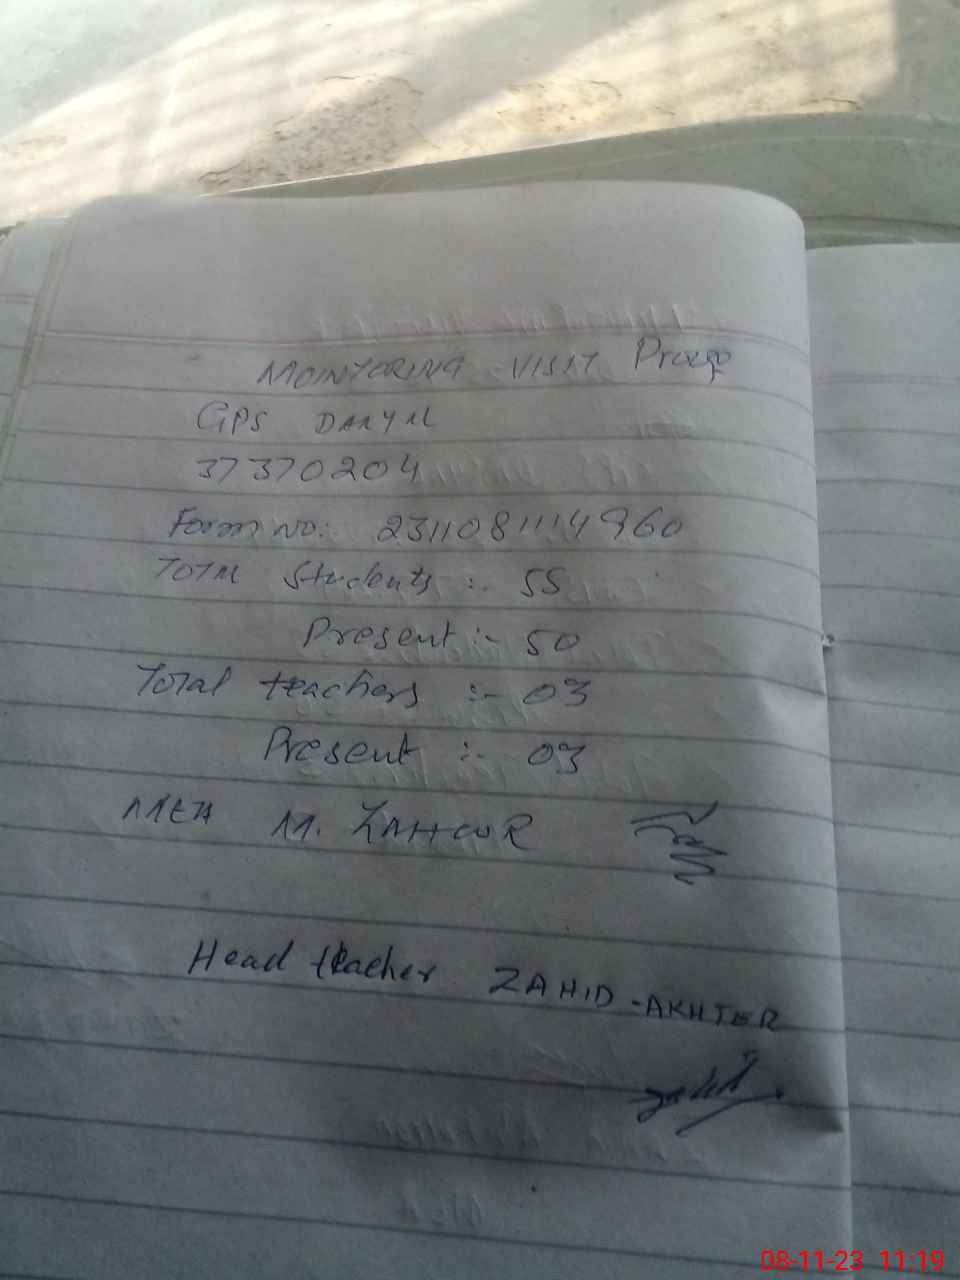 MOINTORING VISIT Proof
GPS
37370204
Form no: 2311081114960
TOTAL Students :- 55
Present :- 50
Total teachers :- 03
Present :- 03
MEA M. ZAHOOR
Head teacher ZAHID-AKHTER
08-11-23 11:19